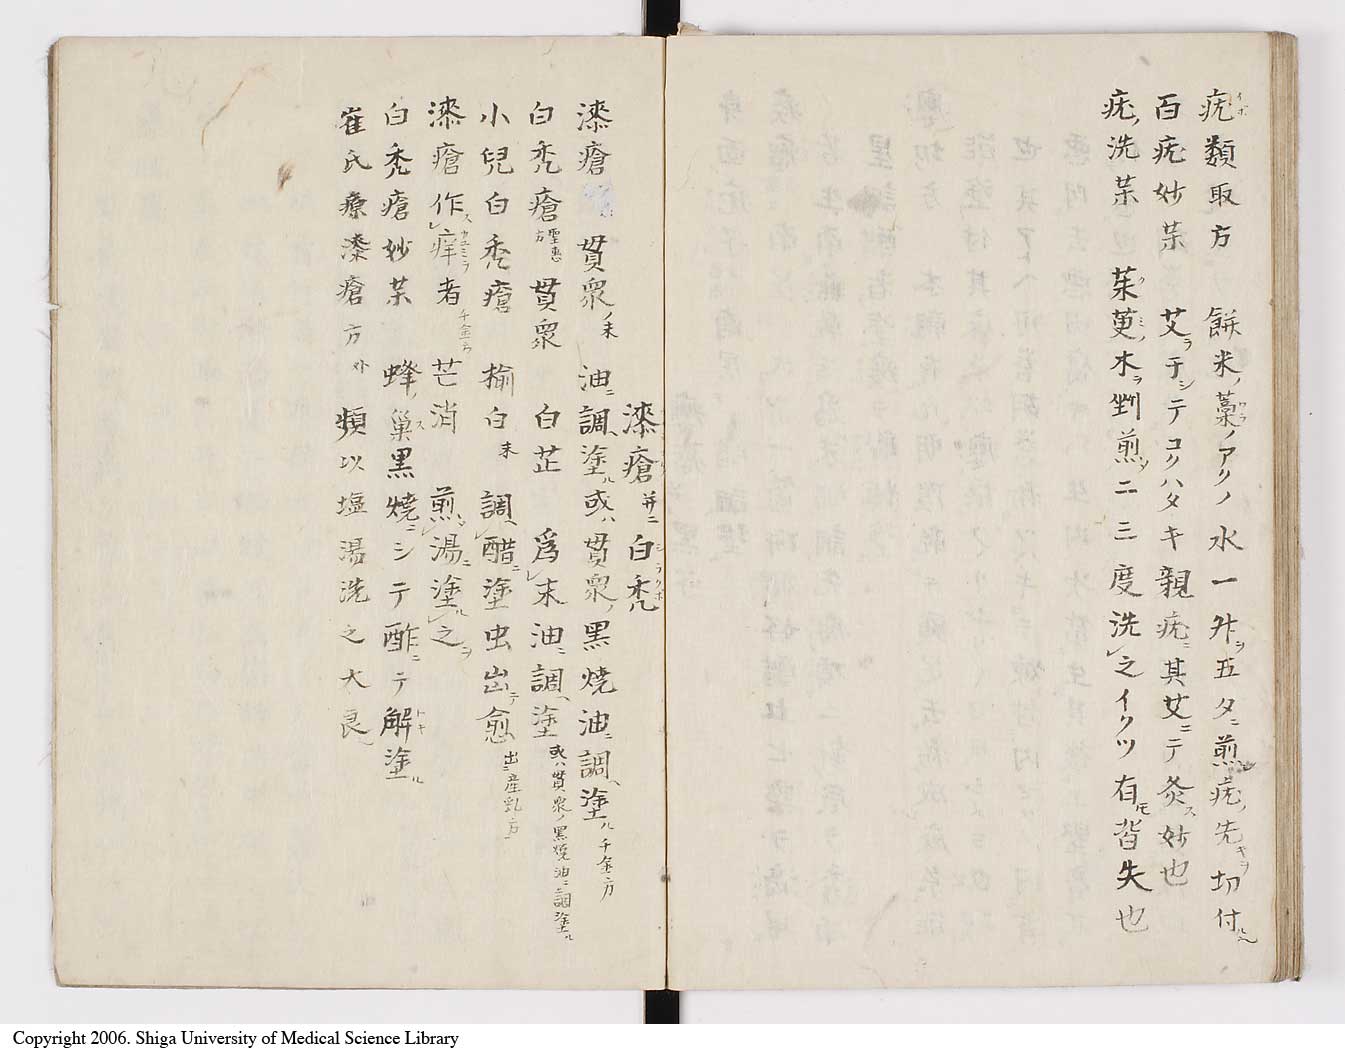 疣類取方 餅米ノ藁ノアクノ水一升ヲ五夕ニ煎疣ノ先キヲ切付ル
百疣妙茱 艾ヲ手シテコクハタキ親疣ニ其艾ニテ灸ス妙也
疣ノ洗茱 茱萸ノ木ヲ剉煎ツ二三度洗之イクツ有モ皆失也
漆瘡并ニ白禿
漆瘡 貫衆ノ末 油ニ調塗ル或ハ貫衆ノ黒焼油ニ調塗ル 千金方
白禿瘡 聖惠方 貫衆 白芷 爲末油ニ調塗 或ハ貫衆ノ黒焼油ニ調塗ル
小兒白禿瘡 楡白末 調醋ニ塗虫出テ愈 出産乳方
漆瘡作痒者 千金方 芒消 煎湯ニ塗ル之ヲ
白禿瘡妙茱 蜂ノ巢黒焼ニシテ酢ニテ解塗ル
崔氏療漆瘡方 外 頻以塩湯洗之大良
Copyright 2006. Shiga University of Medical Science Library